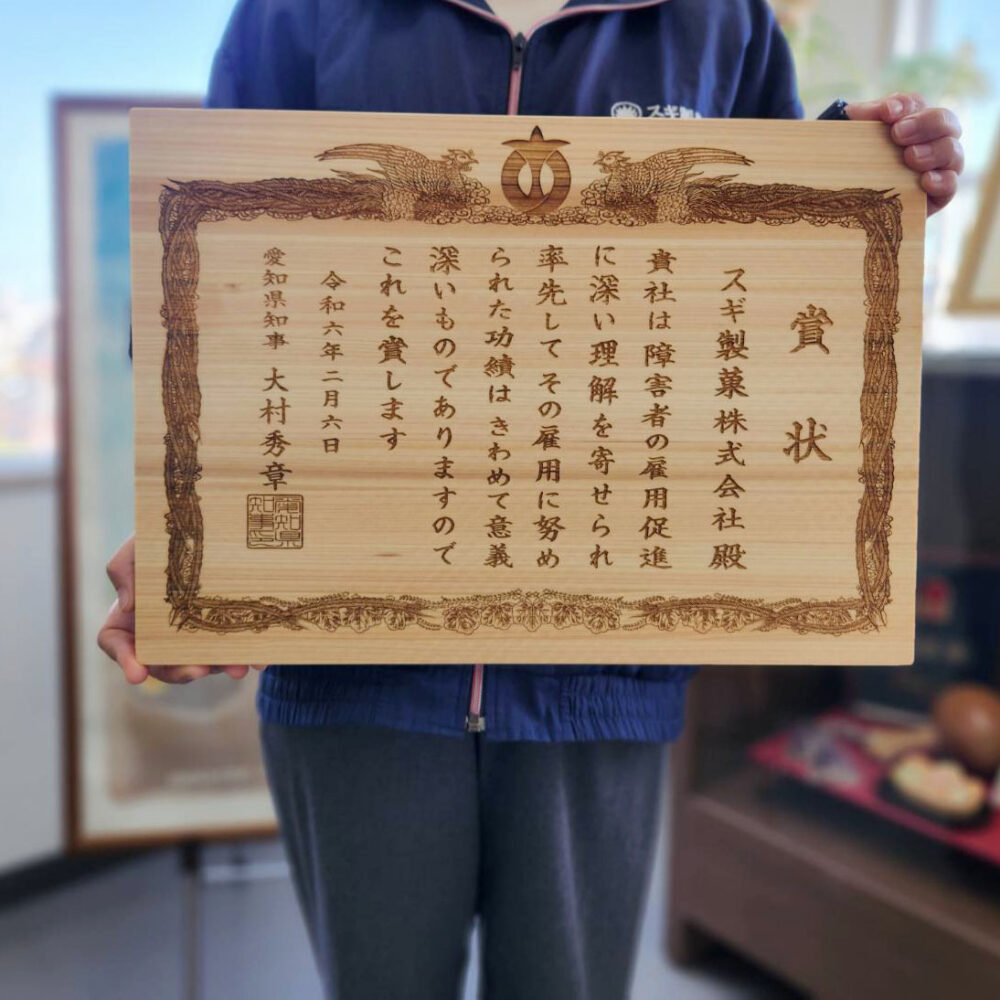 賞状
スギ製菓株式会社殿
貴社は障害者の雇用促進
に深い理解を寄せられ
率先してその雇用に努め
られた功績はきわめて意義
深いものでありますので
これを賞します
令和六年二月六日
愛知県知事 大村秀章
愛知県
知事印
スギ製